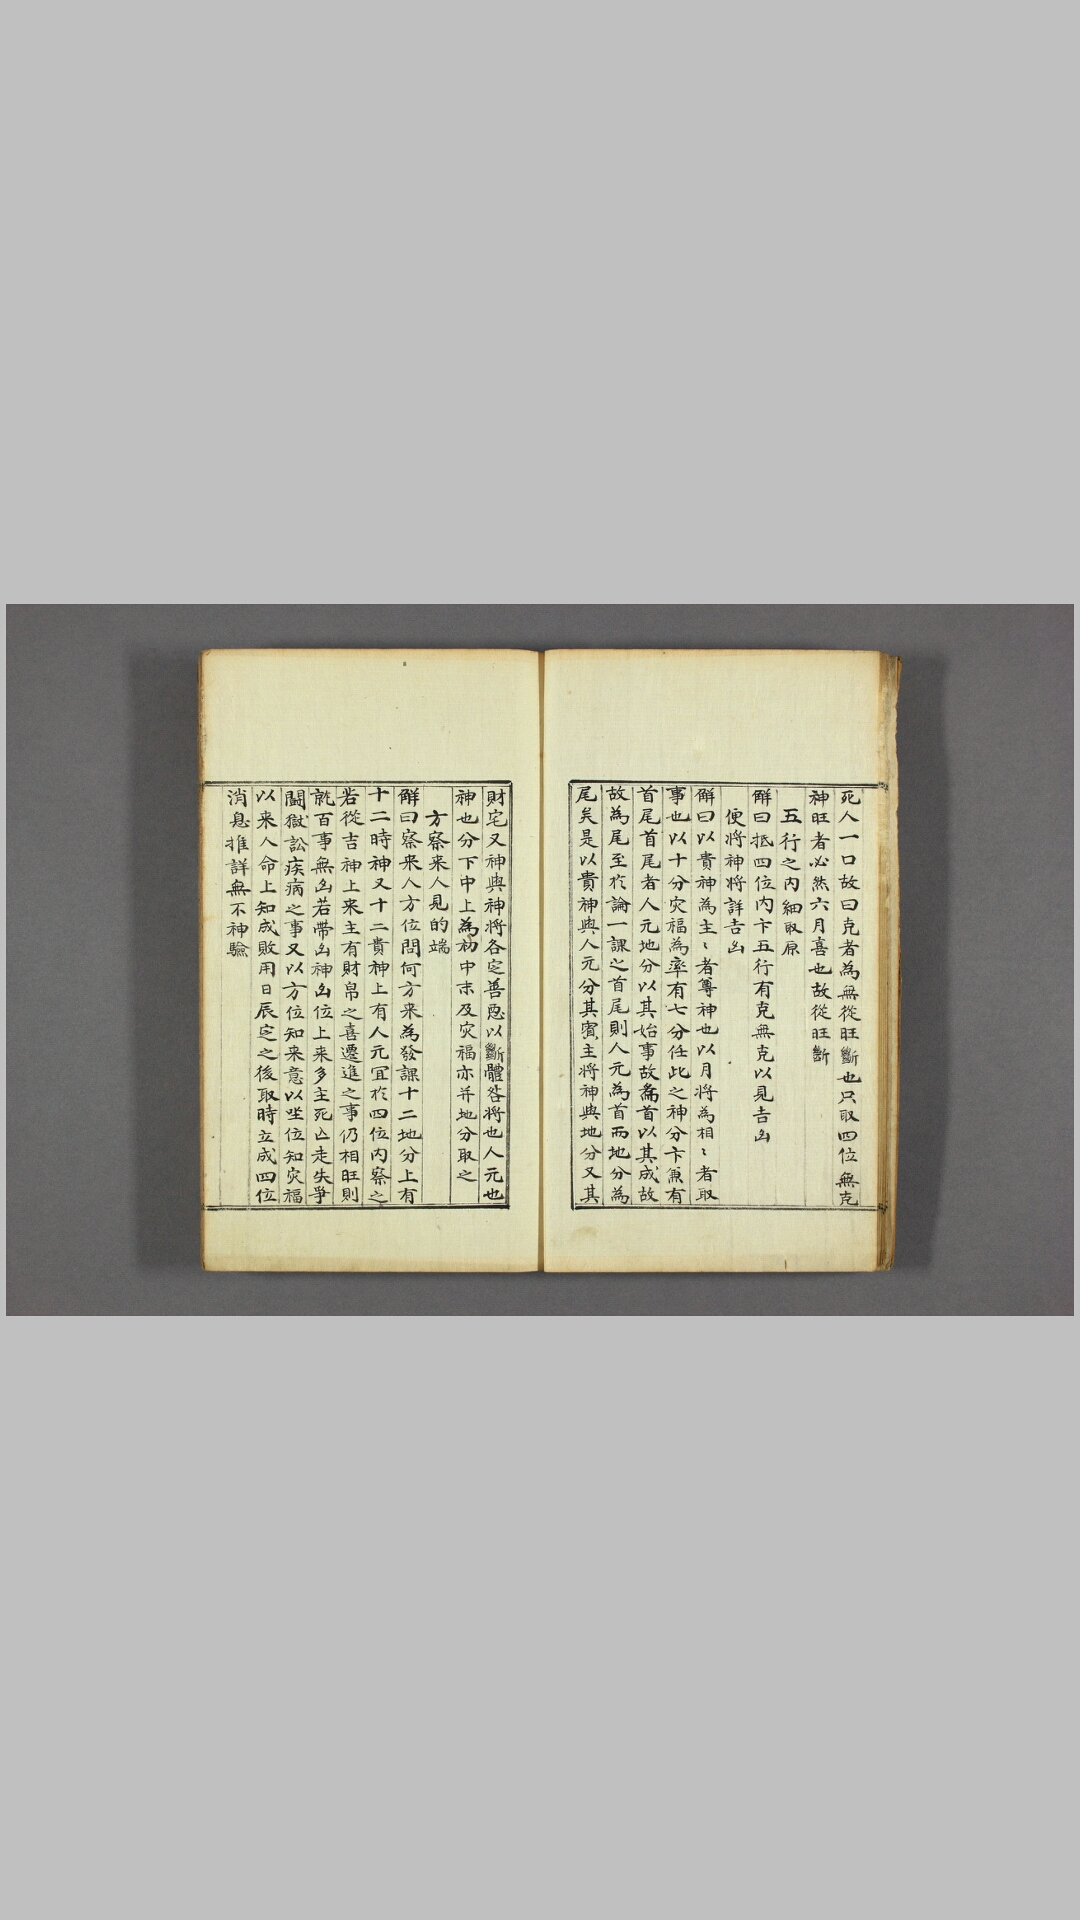 死人一口故曰克者為無從旺斷也只取四位無克
神旺者必然六月喜也故從旺斷
五行之内細取原
解曰抵四位内卞五行有克無克以見吉凶
便將神將詳吉凶
解曰以貴神為主〻者尊神也以月將為相〻者取
事也以十分灾福為率有七分任此之神分卞兼有
首尾首尾者人元地分以其始事故為首以其成故
故為尾至於論一課之首尾則人元為首而地分為
尾矣是以貴神與人元分其賓主將神與地分又其
財宅又神與神將各定善惡以斷體咎將也人元也
神也分下中上為初中末及灾福亦并地分取之
方察来人見的端
解曰察来人方位問何方来為發課十二地分上有
十二時神又十二貴神上有人元冝於四位内察之
若從吉神上来主有財帛之喜遷進之事仍相旺則
就百事無凶若帶凶神凶位上来多主死亾走失爭
鬪獄訟疾病之事又以方位知来意以坐位知灾福
以来人命上知成敗用日辰定之後取時立成四位
消息推詳無不神驗